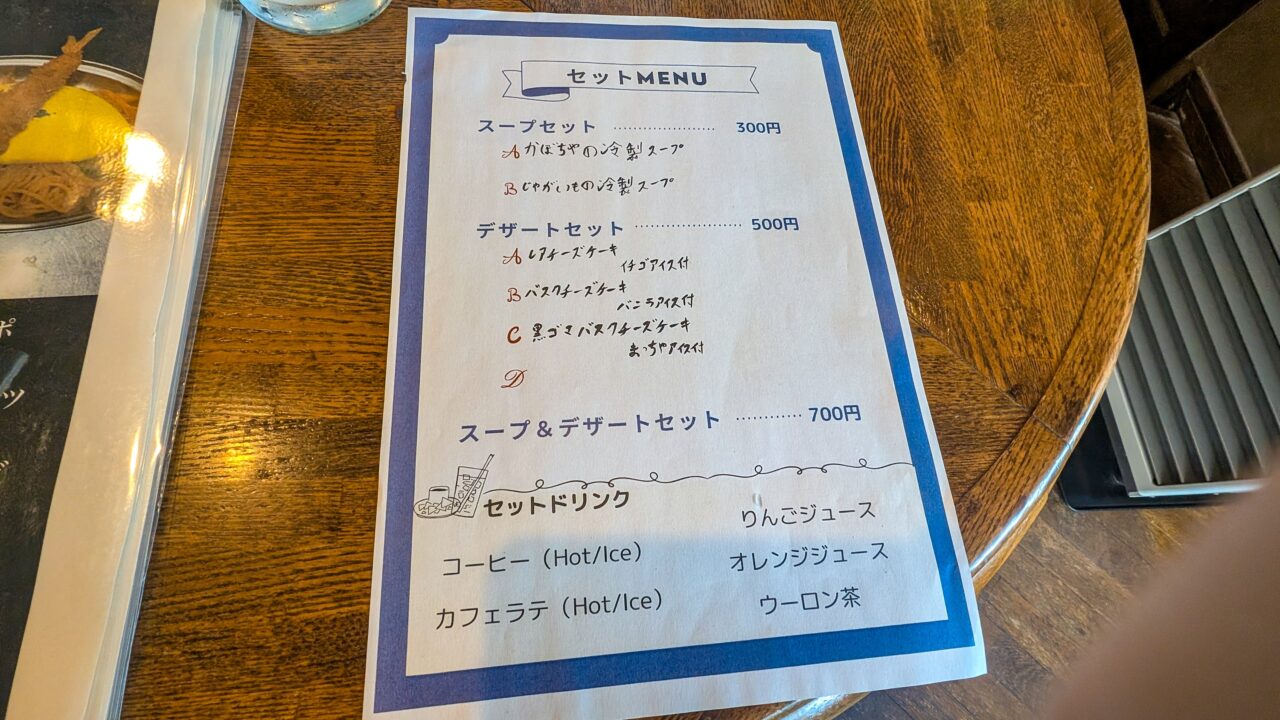 セットMENU
スープセット ………………… 300円
A かぼちゃの冷製スープ
B じゃがいもの冷製スープ
デザートセット ………………… 500円
A レアチーズケーキ
イチゴアイス付
B バスクチーズケーキ
バニラアイス付
C 黒ゴマバスクチーズケーキ
まっちゃアイス付
D
スープ＆デザートセット ………… 700円
セットドリンク
コーヒー（Hot/Ice）
カフェラテ（Hot/Ice）
りんごジュース
オレンジジュース
ウーロン茶
ポ
ツ